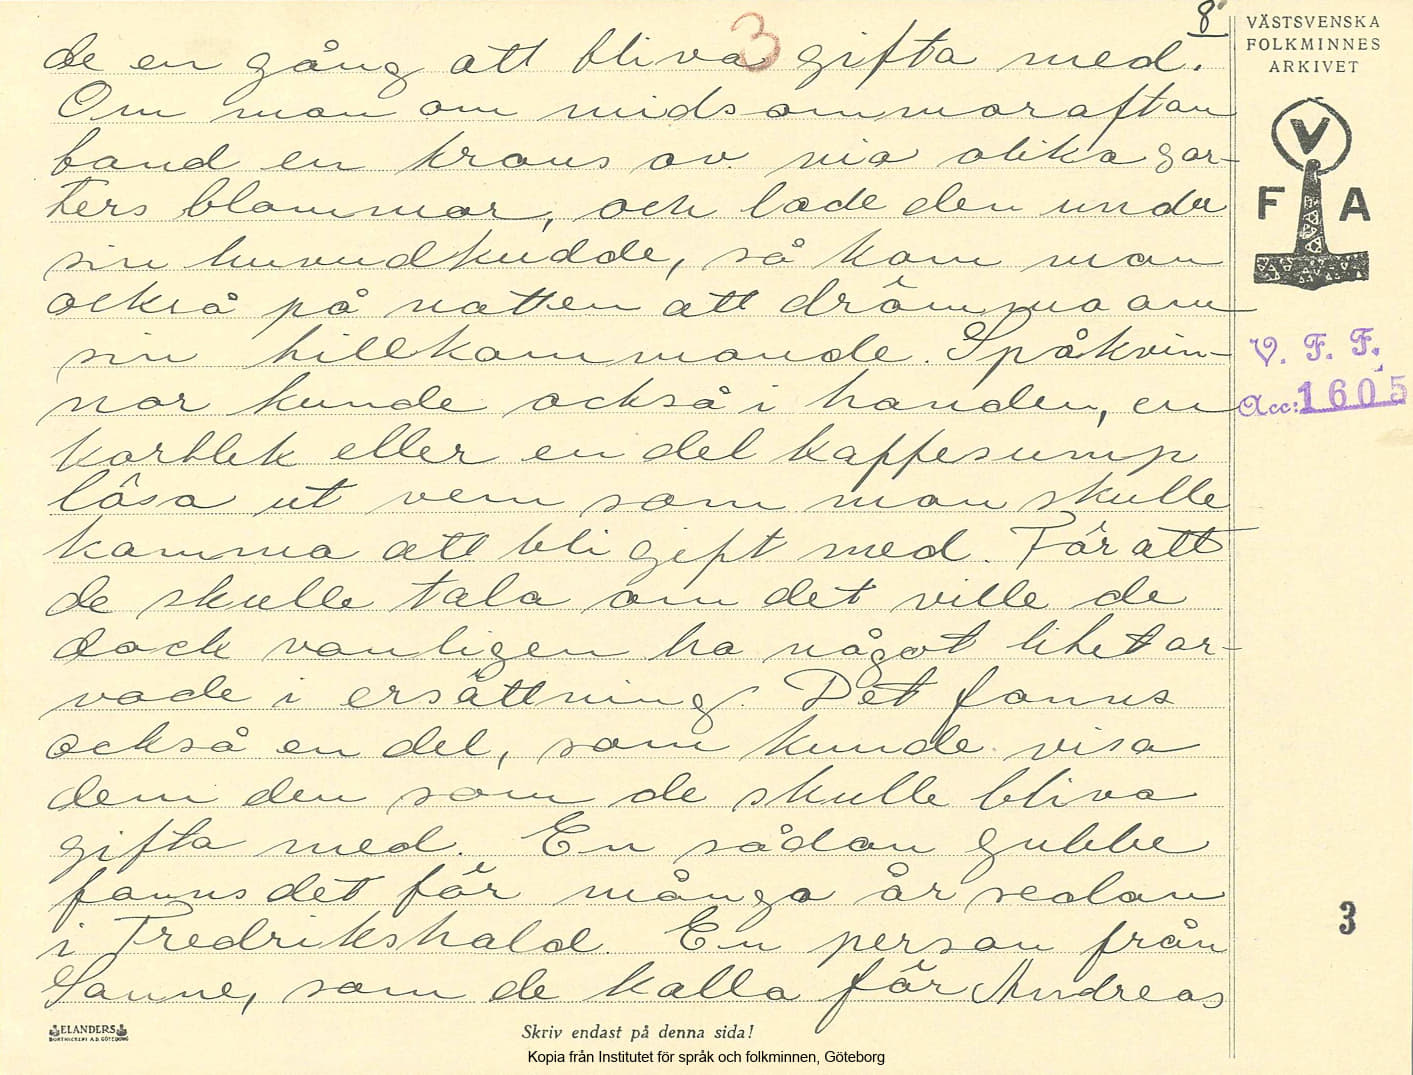 8
VÄSTSVENSKA
FOLKMINNES
ARKIVET
3
de en gång att bliva gifta med.
Om man om midsommaraftan
band en krans av nio olika sor-
ters blommor, och lade den under
sin huvudkudde, så kom man
också på natten att drömma om
sin tillkommande. Spåkvin-
nor kunde också i handen, en
kortlek eller en del kaffesump
läsa ut vem som man skulle
komma att bli gift med. För att
de skulle tala om det ville de
dock vanligen ha något litet ar-
vode i ersättning. Det fanns
också en del, som kunde visa
dem den som de skulle bliva
gifta med. En sådan gubbe
fanns det för många år sedan
i Fredrikshald. En person från
Sanne, som de kalla för Andreas
V
F A
V. F. F.
Acc: 1605
3
ELANDERS
BOKTRYCKERI A.B. GÖTEBORG
Skriv endast på denna sida!
Kopia från Institutet för språk och folkminnen, Göteborg